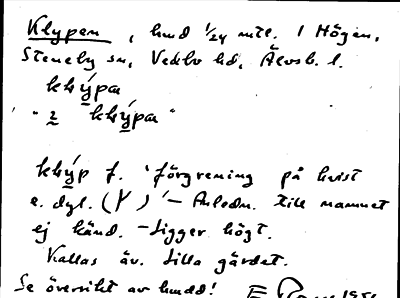 Klypen, hmd 1/24 mtl. i Högen,
Steneby sn, Vedbo hd, Älvsb. l.
klýpa
"2 klýpa"
klýp f. 'förgrening på kvist
e. dyl. (Y)' – Anledn. till namnet
ej känd. – Ligger högt.
Kallas äv. Lilla gärdet.
Se översikt av hmdd!